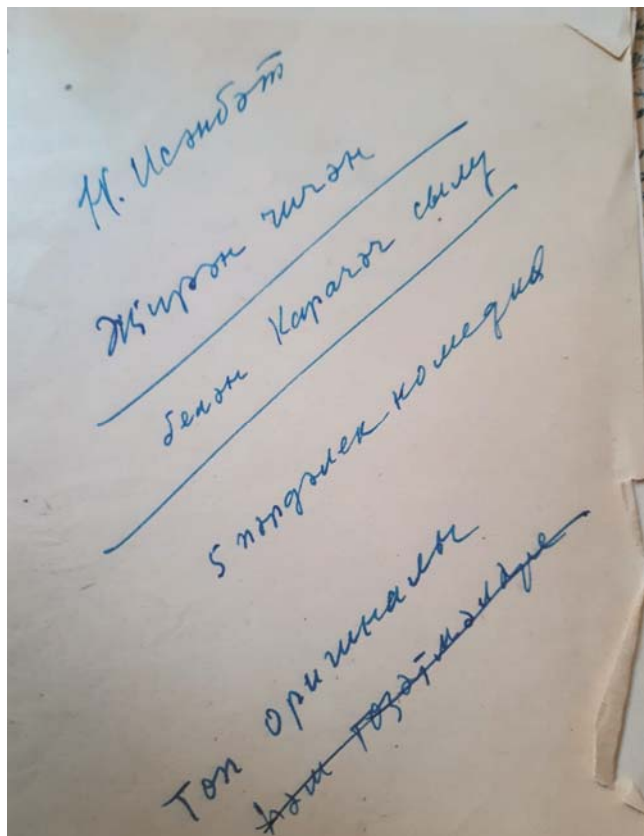 Н. Исәнбәт
Җирән чичән
белән Карачәч сылу
5 пәрдәлек комедия
Төп оригиналы
һәм төзәтмәләре